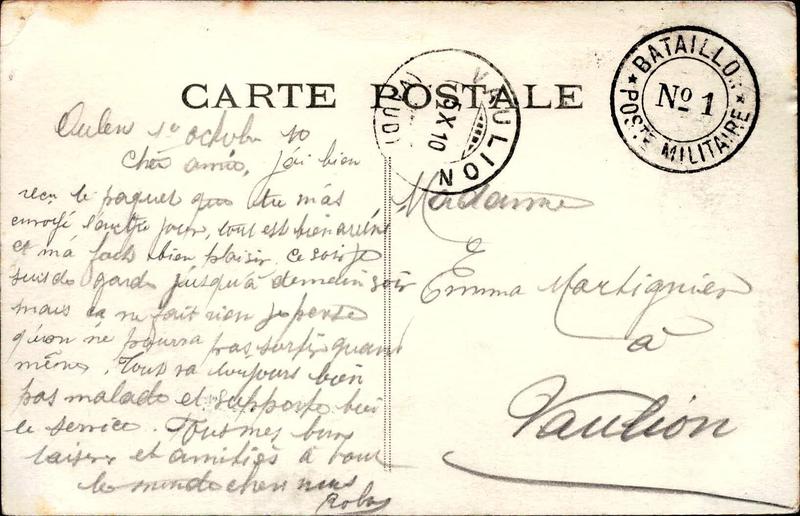 CARTE POSTALE
VAULION
(VAUD)
X 10
BATAILLON
Nº 1
POSTE MILITAIRE
1er octobre 10
Cher amie, j'ai bien
reçu le paquet que tu m'as
envoyé l'autre jour, tout est bien
et m'a fait bien plaisir. Ce soir je
suis de garde jusqu'à demain soir
mais ça ne fait rien je pense
qu'on ne pourra pas sortir quand
même. Tout va toujours bien
pas malade et supporte bien
le service. Tous mes bons
baisers et amitiés à tout
le monde chez nous
Madame
Emma Martignier
à
Vaulion